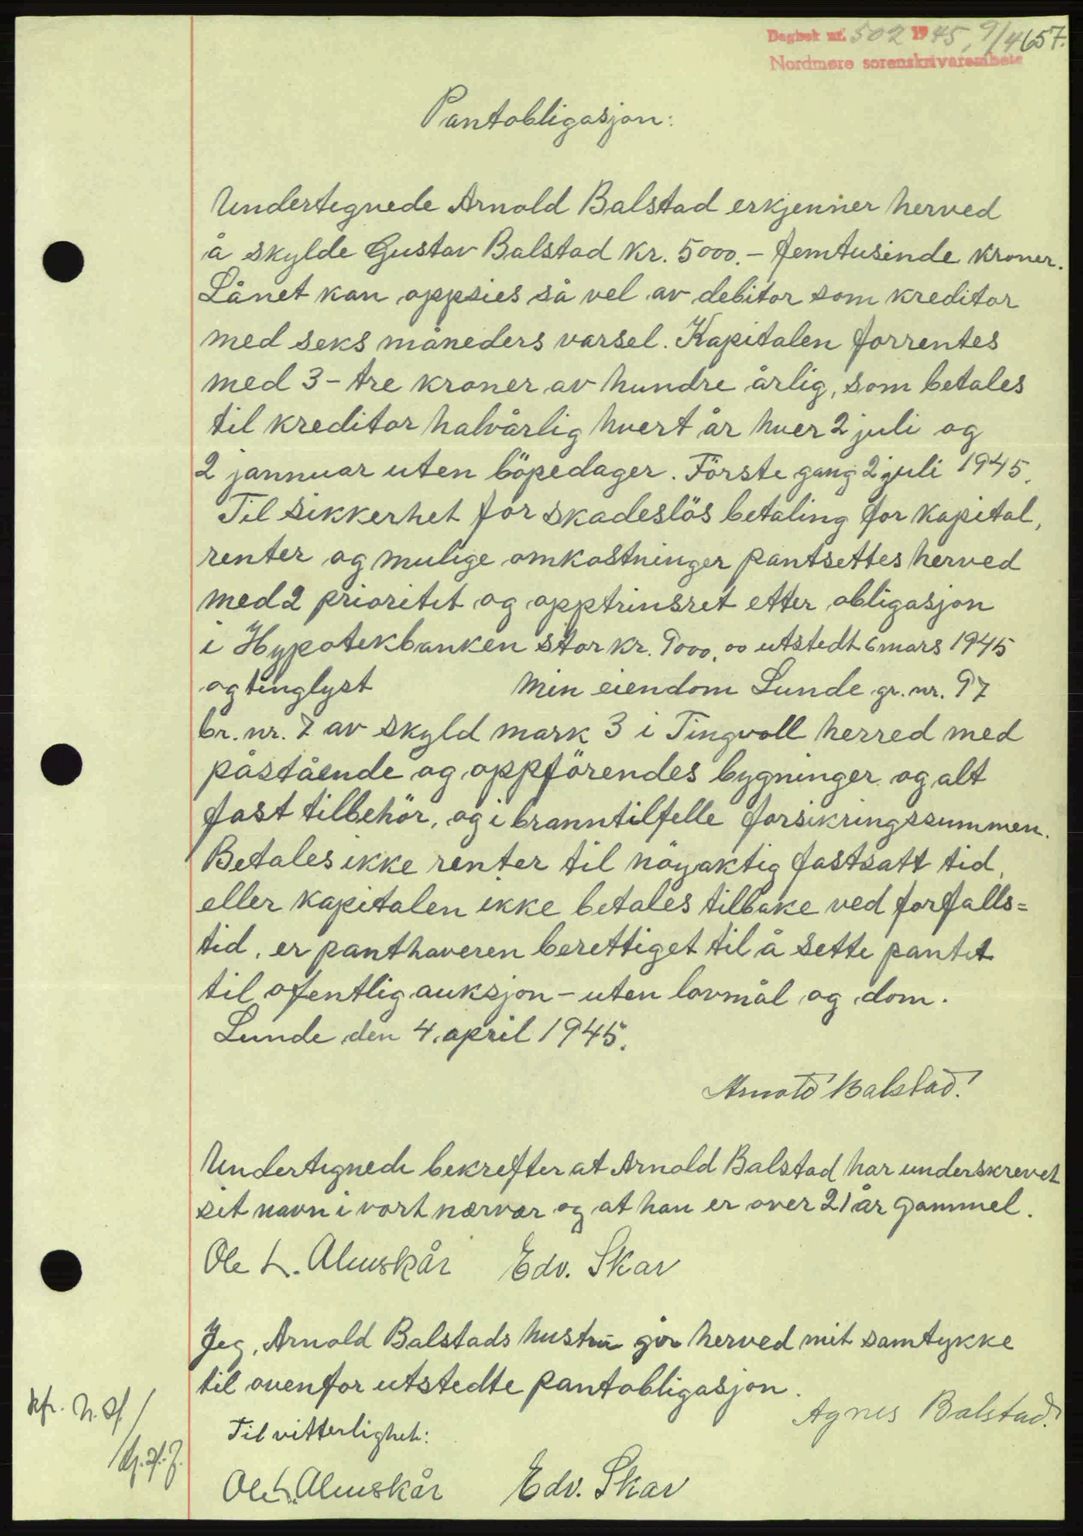 Dagbok nr. 502 1945, 9/4 657.
Nordmøre sorenskrivarembete
Pantobligasjon:
Undertegnede Arnold Balstad erkjenner herved
å skylde Gustav Balstad kr. 5000.- femtusinde kroner.
Lånet kan oppsies så vel av debitor som kreditor
med seks måneders varsel. Kapitalen forrentes
med 3 - tre kroner av hundre årlig, som betales
til kreditor halvårlig hvert år hver 2 juli og
2 jannuar uten löpedager. Förste gang 2 juli 1945.
Til sikkerhet for skadeslös betaling for kapital,
renter og mulige omkostninger pantsettes herved
med 2 prioritet og opptrinsret etter obligasjon
i Hypotekbanken stor kr. 9000,00 utstedt 6 mars 1945
og tinglyst min eiendom Lunde gr. nr. 97
br. nr. 7 av skyld mark 3 i Tingvoll herred med
påstående og oppförendes bygninger og alt
fast tilbehör, og i branntilfelle forsikringssummen.
Betales ikke renter til nöyaktig fastsatt tid,
eller kapitalen ikke betales tilbake ved forfalls=
tid, er panthaveren berettiget til å sette pantet
til ofentlig auksjon - uten lovmål og dom.
Lunde den 4. april 1945.
Arnold Balstad.
Undertegnede bekrefter at Arnold Balstad har underskrevet
sit navn i vort nærvær og at han er over 21 år gammel.
Ole L. Almskår Edv. Skar
Jeg, Arnold Balstads hustru gör herved mit samtykke
til ovenfor utstedte pantobligasjon.
Agnes Balstad.
Til vitterlighet:
Ole L. Almskår Edv. Skar